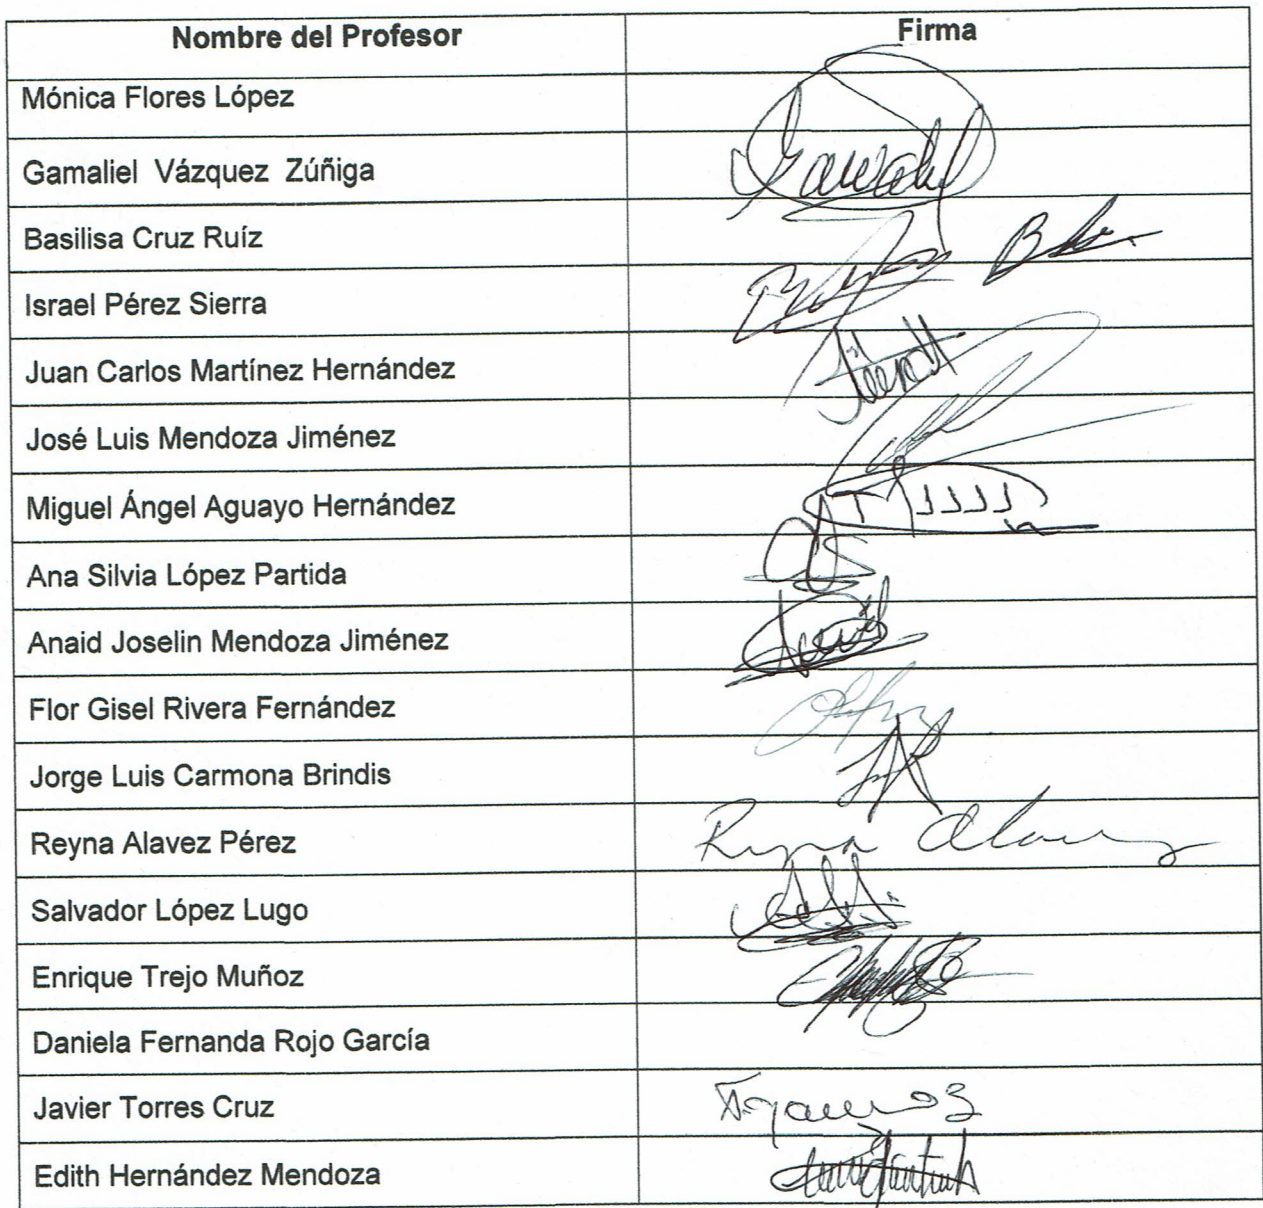 Nombre del Profesor Firma
Mónica Flores López
Gamaliel Vázquez Zúñiga
Basilisa Cruz Ruíz
Israel Pérez Sierra
Juan Carlos Martínez Hernández
José Luis Mendoza Jiménez
Miguel Ángel Aguayo Hernández
Ana Silvia López Partida
Anaid Joselin Mendoza Jiménez
Flor Gisel Rivera Fernández
Jorge Luis Carmona Brindis
Reyna Alavez Pérez Reyna Alavez
Salvador López Lugo
Enrique Trejo Muñoz
Daniela Fernanda Rojo García
Javier Torres Cruz
Edith Hernández Mendoza